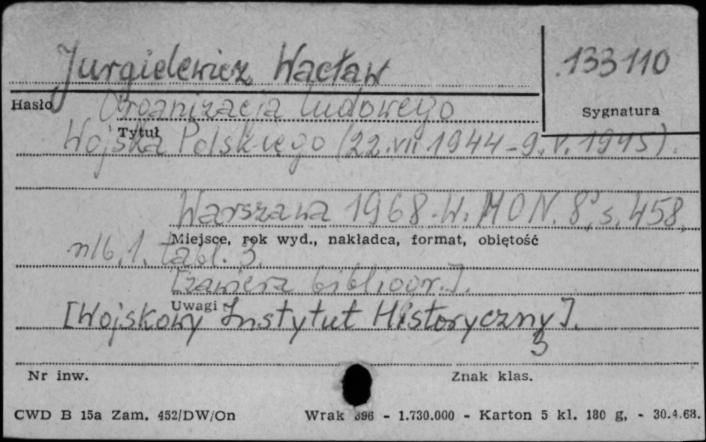 Jurgielewicz Wacław
133110
Hasło
Sygnatura
Organizacja ludowego
Tytuł
Wojska Polskiego (22.VII 1944 - 9.V.1945).
Warszawa 1968. W. MON. 8°, s. 458,
Miejsce, rok wyd., nakładca, format, objętość
nlb. 1. tabl. 3.
[zawiera bibliogr.].
Uwagi
[Wojskowy Instytut Historyczny].
3
Nr inw.
Znak klas.
CWD B 15a Zam. 452/DW/On Wrak 396 - 1.730.000 - Karton 5 kl. 180 g, - 30.4.68.